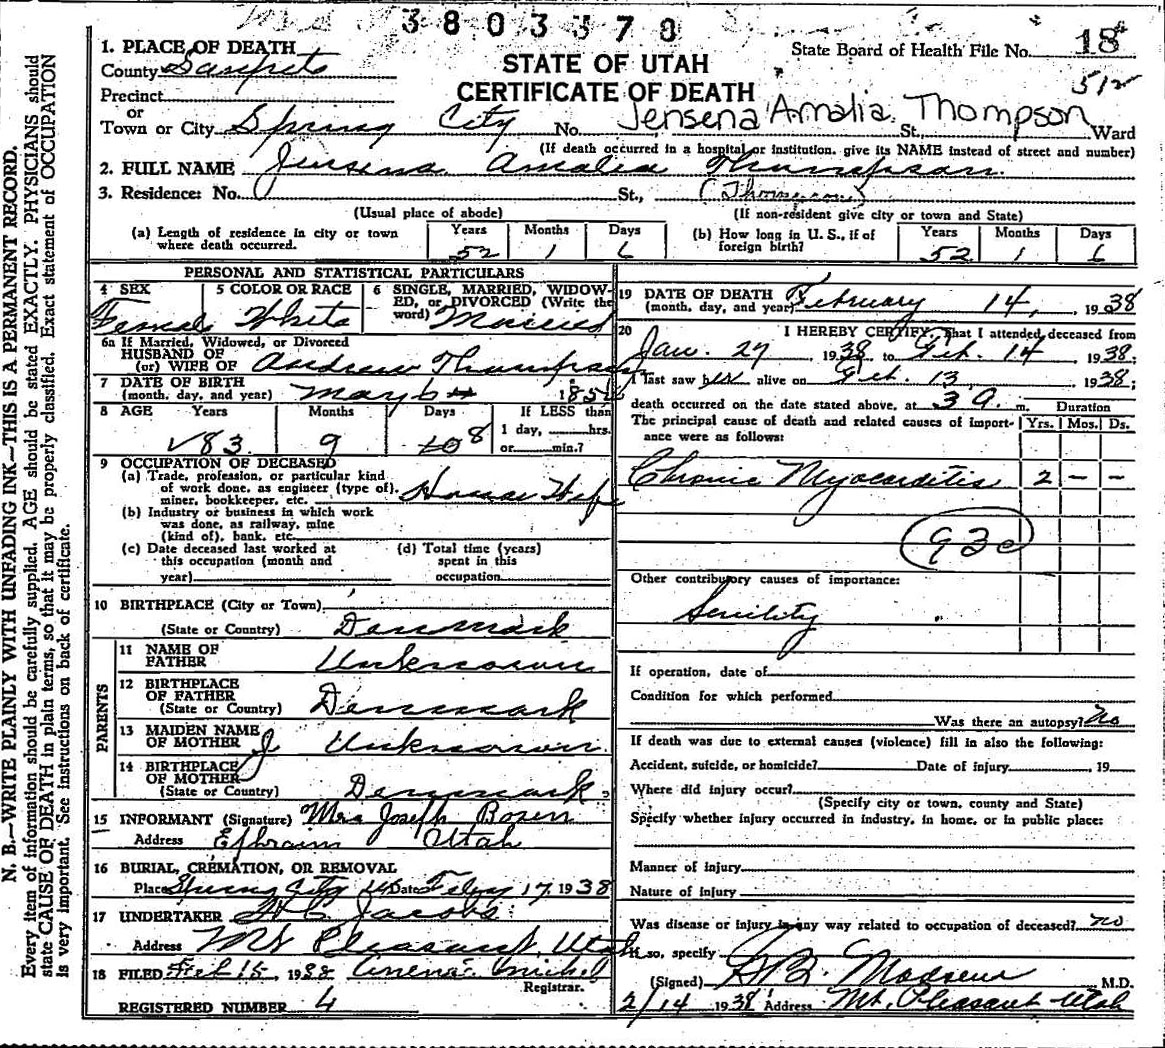 3803370
1. PLACE OF DEATH
County Sanpete
Precinct
or
Town or City Spring City No. St., Ward
STATE OF UTAH
CERTIFICATE OF DEATH
State Board of Health File No. 18
512
Jensena Amalia Thompson
(If death occurred in a hospital or institution, give its NAME instead of street and number)
2. FULL NAME Jensena Amalia Thompson
3. Residence: No. St., (Thompson)
(Usual place of abode) (If non-resident give city or town and State)
(a) Length of residence in city or town where death occurred. Years 52 Months 1 Days 6
(b) How long in U. S., if of foreign birth? Years 52 Months 1 Days 6
PERSONAL AND STATISTICAL PARTICULARS
4 SEX Female
5 COLOR OR RACE White
6 SINGLE, MARRIED, WIDOWED, or DIVORCED (Write the word) Married
6a If Married, Widowed, or Divorced
HUSBAND OF
(or) WIFE OF Andrew Thompson
7 DATE OF BIRTH
(month, day, and year) May 6th 1854
8 AGE Years 83 Months 9 Days 8
If LESS than
1 day, hrs.
or min.?
9 OCCUPATION OF DECEASED
(a) Trade, profession, or particular kind
of work done, as engineer (type of),
miner, bookkeeper, etc. House Wife
(b) Industry or business in which work
was done, as railway, mine
(kind of), bank, etc.
(c) Date deceased last worked at
this occupation (month and
year)
(d) Total time (years)
spent in this
occupation
10 BIRTHPLACE (City or Town)
(State or Country) Denmark
PARENTS
11 NAME OF
FATHER Unknown
12 BIRTHPLACE
OF FATHER
(State or Country) Denmark
13 MAIDEN NAME
OF MOTHER Unknown
14 BIRTHPLACE
OF MOTHER
(State or Country) Denmark
15 INFORMANT (Signature) Mrs Joseph
Address Ephraim Utah
16 BURIAL, CREMATION, OR REMOVAL
Place Spring City Ut Date Feby 17, 1938
17 UNDERTAKER Jacobs
Address Mt Pleasant, Utah
18 FILED Feb 15 1938
Registrar.
REGISTERED NUMBER 4
19 DATE OF DEATH
(month, day, and year) February 14, 1938
20 I HEREBY CERTIFY, That I attended deceased from
Jan. 27 1938, to Feb. 14 1938;
I last saw alive on Feb. 13, 1938;
death occurred on the date stated above, at 3 a. m.
Duration
The principal cause of death and related causes of importance were as follows: Yrs. Mos. Ds.
Chronic Myocarditis 2 - -
93c
Other contributory causes of importance:
Senility
If operation, date of
Condition for which performed
Was there an autopsy? No
If death was due to external causes (violence) fill in also the following:
Accident, suicide, or homicide? Date of injury 19
Where did injury occur?
(Specify city or town, county and State)
Specify whether injury occurred in industry, in home, or in public place:
Manner of injury
Nature of injury
Was disease or injury in any way related to occupation of deceased? no
If so, specify
(Signed) Madsen M.D.
2/14 1938 Address Mt. Pleasant Utah
N. B.—WRITE PLAINLY WITH UNFADING INK—THIS IS A PERMANENT RECORD.
Every item of information should be carefully supplied. AGE should be stated EXACTLY. PHYSICIANS should
state CAUSE OF DEATH in plain terms, so that it may be properly classified. Exact statement of OCCUPATION
is very important. See instructions on back of certificate.